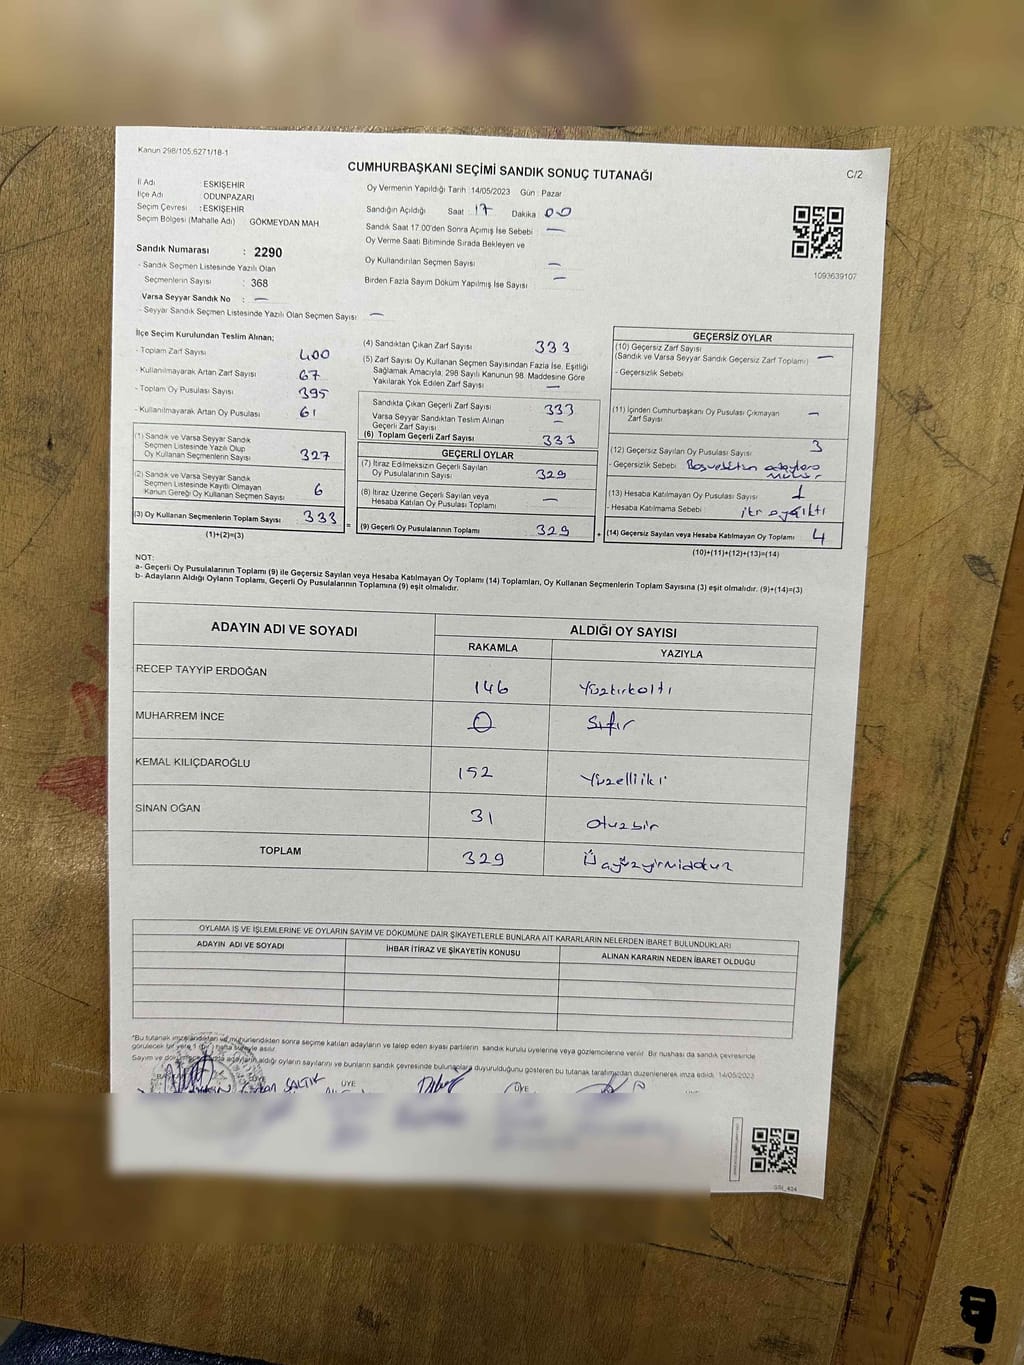 Kanun 298/105,6271/18-1
CUMHURBAŞKANI SEÇİMİ SANDIK SONUÇ TUTANAĞI
C/2
İl Adı : ESKİŞEHİR
İlçe Adı ODUNPAZARI
Seçim Çevresi : ESKİŞEHİR
Seçim Bölgesi (Mahalle Adı) GÖKMEYDAN MAH
Sandık Numarası : 2290
- Sandık Seçmen Listesinde Yazılı Olan
Seçmenlerin Sayısı : 368
Varsa Seyyar Sandık No : —
- Seyyar Sandık Seçmen Listesinde Yazılı Olan Seçmen Sayısı —
Oy Vermenin Yapıldığı Tarih : 14/05/2023 Gün : Pazar
Sandığın Açıldığı Saat 17 Dakika 00
Sandık Saat 17:00'den Sonra Açımış İse Sebebi —
Oy Verme Saati Bitiminde Sırada Bekleyen ve
Oy Kullandırılan Seçmen Sayısı —
Birden Fazla Sayım Döküm Yapılmış İse Sayısı —
1093639107
İlçe Seçim Kurulundan Teslim Alınan;
- Toplam Zarf Sayısı 400
- Kullanılmayarak Artan Zarf Sayısı 67
- Toplam Oy Pusulası Sayısı 395
- Kullanılmayarak Artan Oy Pusulası 61
(1) Sandık ve Varsa Seyyar Sandık
Seçmen Listesinde Yazılı Olup
Oy Kullanan Seçmenlerin Sayısı 327
(2) Sandık ve Varsa Seyyar Sandık
Seçmen Listesinde Kayıtlı Olmayan
Kanun Gereği Oy Kullanan Seçmen Sayısı 6
(3) Oy Kullanan Seçmenlerin Toplam Sayısı 333
(1)+(2)=(3)
(4) Sandıktan Çıkan Zarf Sayısı 333
(5) Zarf Sayısı Oy Kullanan Seçmen Sayısından Fazla İse, Eşitliği
Sağlamak Amacıyla, 298 Sayılı Kanunun 98. Maddesine Göre
Yakılarak Yok Edilen Zarf Sayısı —
Sandıkta Çıkan Geçerli Zarf Sayısı 333
Varsa Seyyar Sandıktan Teslim Alınan
Geçerli Zarf Sayısı —
(6) Toplam Geçerli Zarf Sayısı 333
GEÇERLİ OYLAR
(7) İtiraz Edilmeksizin Geçerli Sayılan
Oy Pusulalarının Sayısı 329
(8) İtiraz Üzerine Geçerli Sayılan veya
Hesaba Katılan Oy Pusulası Toplamı —
= (9) Geçerli Oy Pusulalarının Toplamı 329 +
GEÇERSİZ OYLAR
(10) Geçersiz Zarf Sayısı
(Sandık ve Varsa Seyyar Sandık Geçersiz Zarf Toplamı) —
- Geçersizlik Sebebi
(11) İçinden Cumhurbaşkanı Oy Pusulası Çıkmayan
Zarf Sayısı —
(12) Geçersiz Sayılan Oy Pusulası Sayısı 3
- Geçersizlik Sebebi
(13) Hesaba Katılmayan Oy Pusulası Sayısı 1
- Hesaba Katılmama Sebebi
(14) Geçersiz Sayılan veya Hesaba Katılmayan Oy Toplamı 4
(10)+(11)+(12)+(13)=(14)
NOT:
a- Geçerli Oy Pusulalarının Toplamı (9) ile Geçersiz Sayılan veya Hesaba Katılmayan Oy Toplamı (14) Toplamları, Oy Kullanan Seçmenlerin Toplam Sayısına (3) eşit olmalıdır. (9)+(14)=(3)
b- Adayların Aldığı Oyların Toplamı, Geçerli Oy Pusulalarının Toplamına (9) eşit olmalıdır.
ADAYIN ADI VE SOYADI ALDIĞI OY SAYISI
RAKAMLA YAZIYLA
RECEP TAYYIP ERDOĞAN 146 Yüzkırkaltı
MUHARREM İNCE 0 Sıfır
KEMAL KILIÇDAROĞLU 152 Yüzelliiki
SİNAN OĞAN 31 Otuzbir
TOPLAM 329 Üçyüzyirmidokuz
OYLAMA İŞ VE İŞLEMLERİNE VE OYLARIN SAYIM VE DÖKÜMÜNE DAİR ŞİKAYETLERLE BUNLARA AİT KARARLARIN NELERDEN İBARET BULUNDUKLARI
ADAYIN ADI VE SOYADI İHBAR İTİRAZ VE ŞİKAYETİN KONUSU ALINAN KARARIN NEDEN İBARET OLDUĞU
*Bu tutanak imzalandıktan ve mühürlendikten sonra seçime katılan adayların ve talep eden siyasi partilerin sandık kurulu üyelerine veya gözlemcilerine verilir. Bir nüshası da sandık çevresinde
görülecek bir yere 1 (bir) hafta süreyle asılır.
Sayım ve döküm adayların aldığı oyların sayılarını ve bunların sandık çevresinde bulunanlara duyurulduğunu gösteren bu tutanak tarafımızdan düzenlenerek imza edildi. 14/05/2023
ÜYE ÜYE